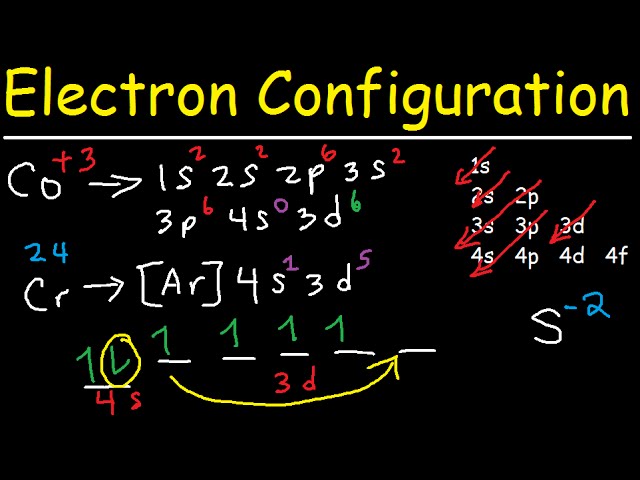 Electron Configuration
Co⁺³ → 1s² 2s² 2p⁶ 3s²
3p⁶ 4s⁰ 3d⁶
²⁴Cr → [Ar] 4s¹ 3d⁵
1 1 1 1 1 1
4s 3d
1s
2s 2p
3s 3p 3d
4s 4p 4d 4f
S⁻²